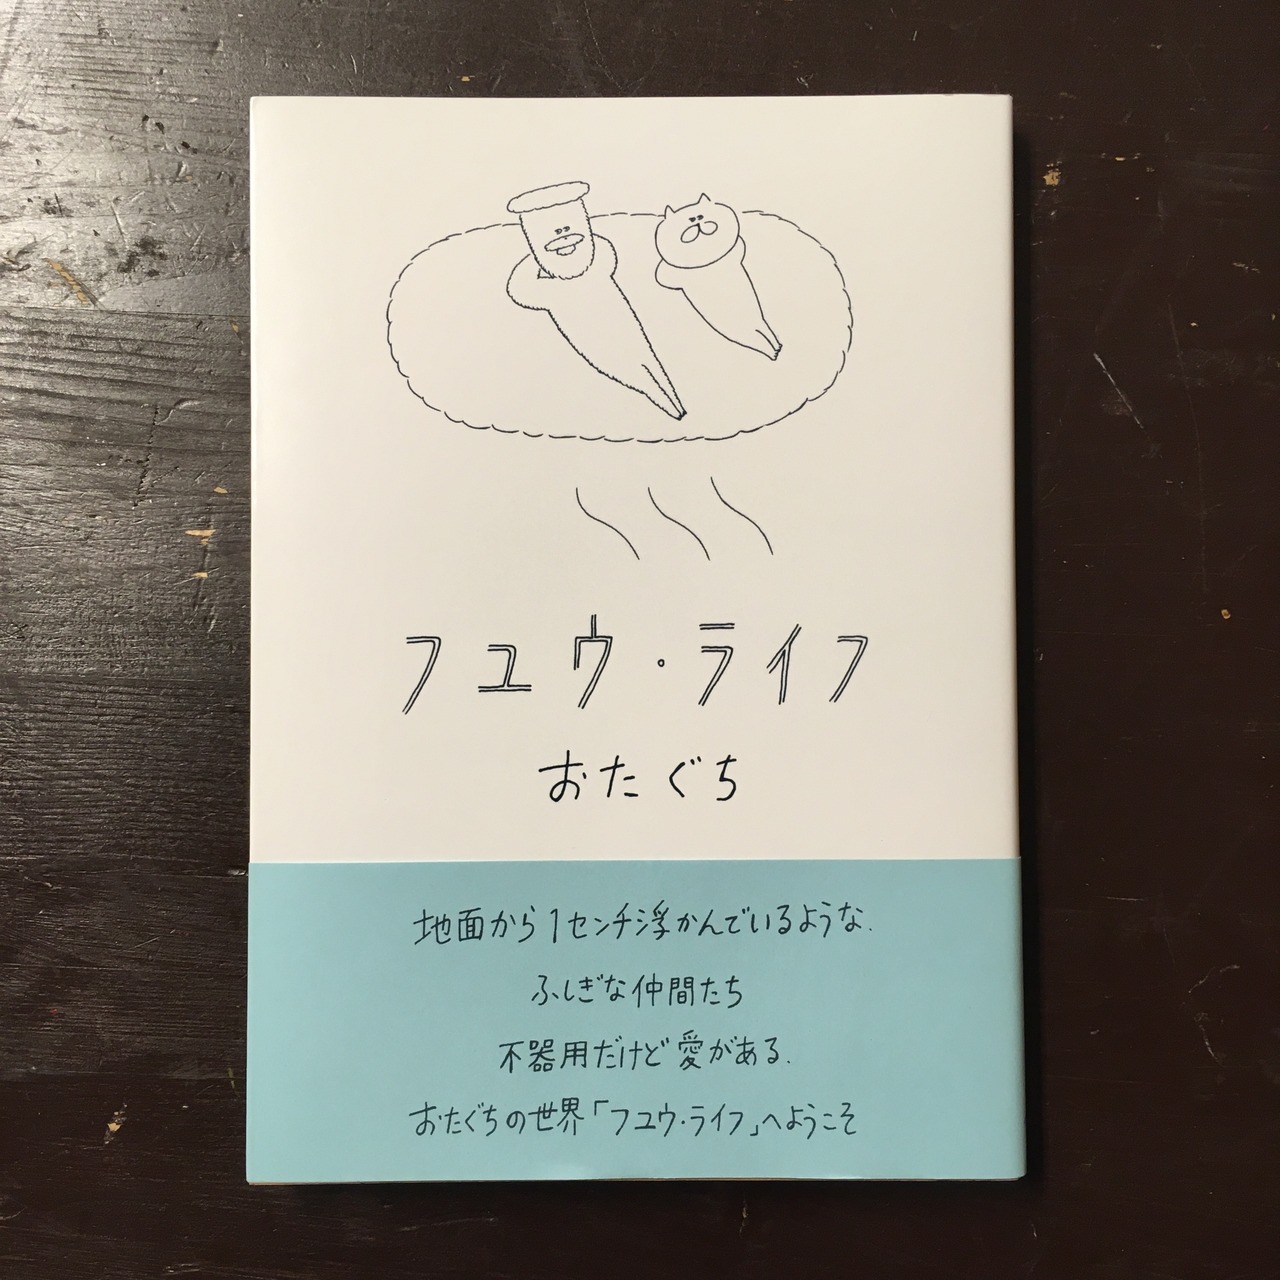 フユウ・ライフ
おたぐち
地面から1センチ浮かんでいるような.
ふしぎな仲間たち
不器用だけど愛がある.
おたぐちの世界「フユウ・ライフ」へようこそ